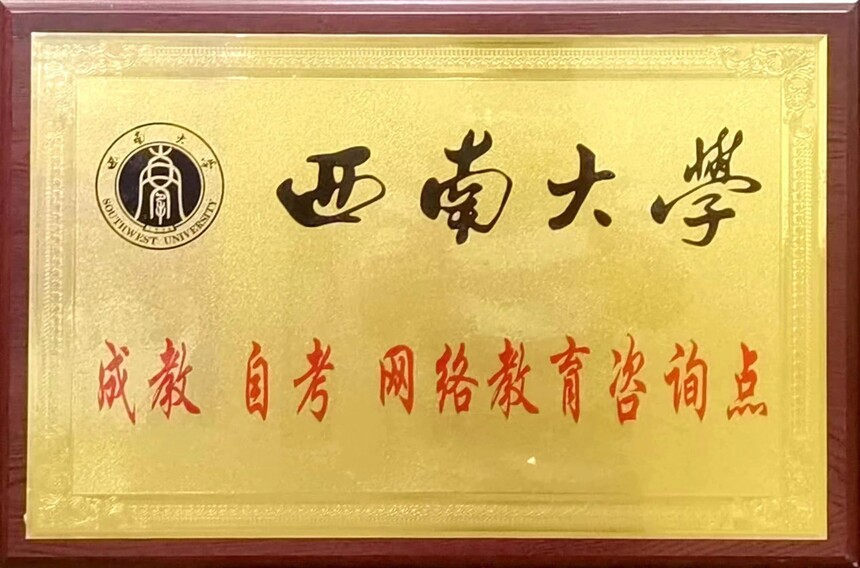 西南大学
SOUTHWEST UNIVERSITY
西南大學
成教 自考 网络教育咨询点